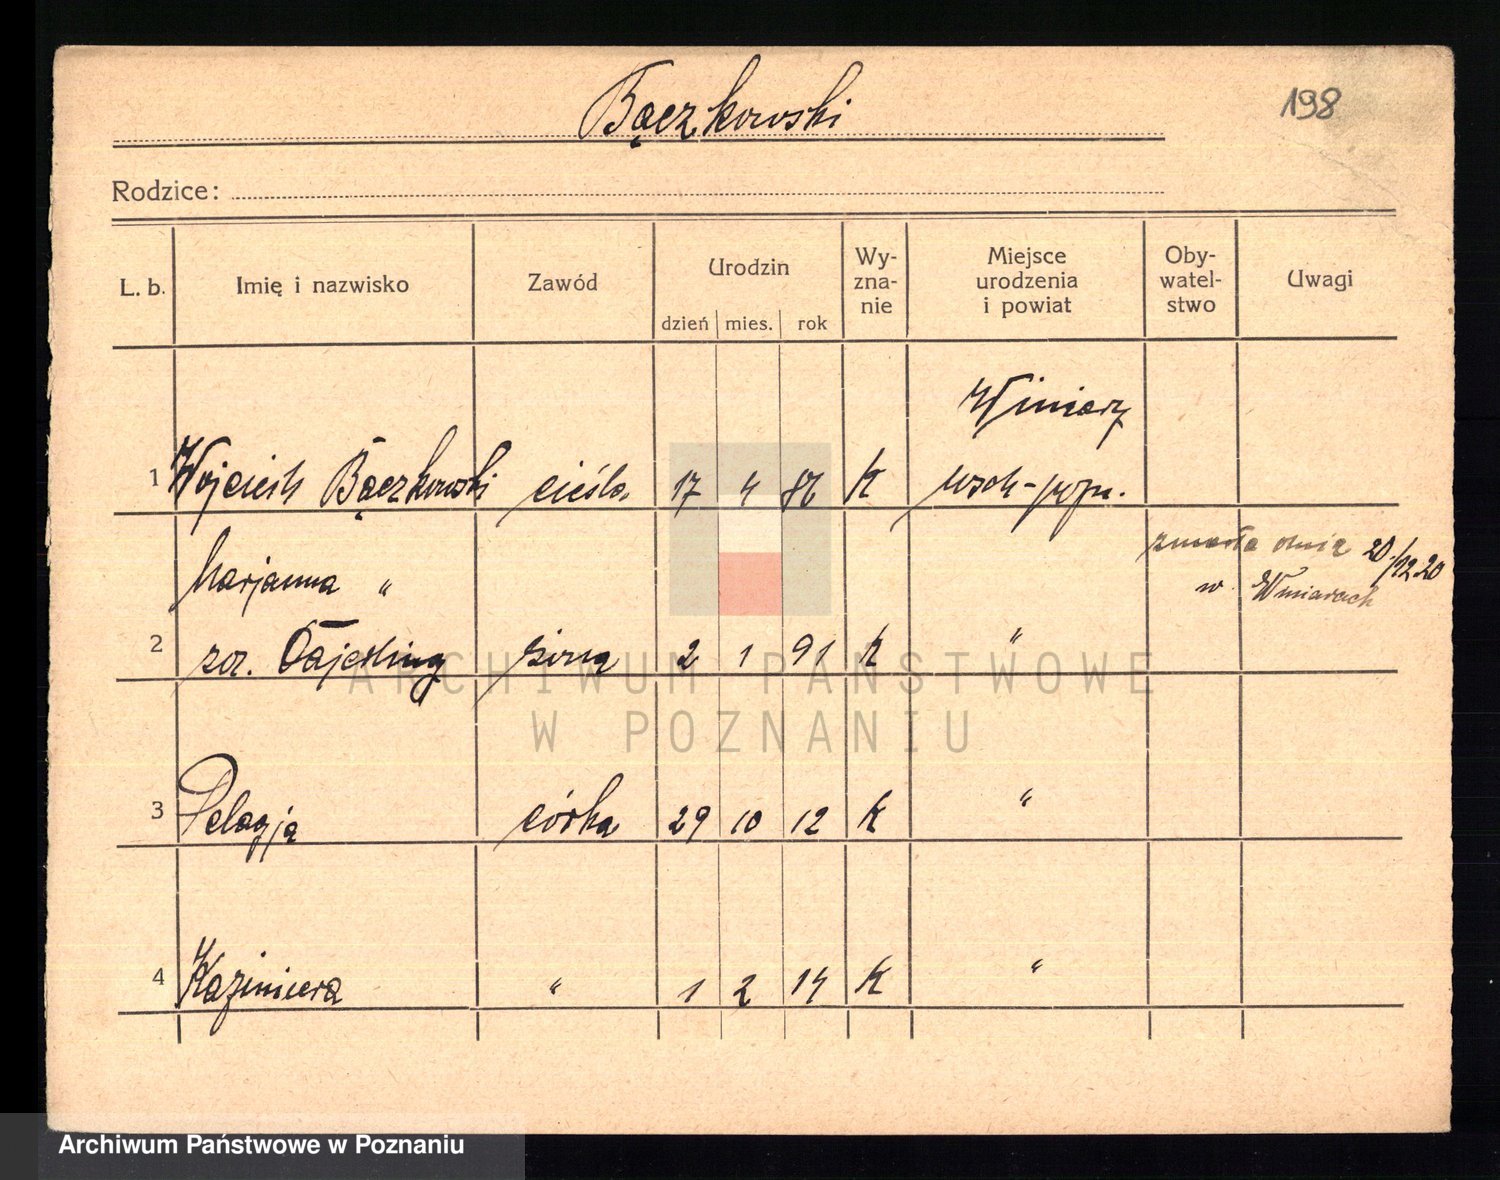 Bączkowski
198
Rodzice:
L. b. Imię i nazwisko Zawód Urodzin dzień mies. rok Wy-zna-nie Miejsce urodzenia i powiat Oby-watel-stwo Uwagi
Winiary
1 Wojciech Bączkowski cieśla 17 4 86 K wsch-pozn.
zmarła dnia 20/12.20
Marjanna "
w Winiarach
2 zor. żona 2 1 91 K "
3 Pelagja córka 29 10 12 K "
4 Kazimiera " 1 2 14 K "
ARCHIWUM PAŃSTWOWE
W POZNANIU
Archiwum Państwowe w Poznaniu